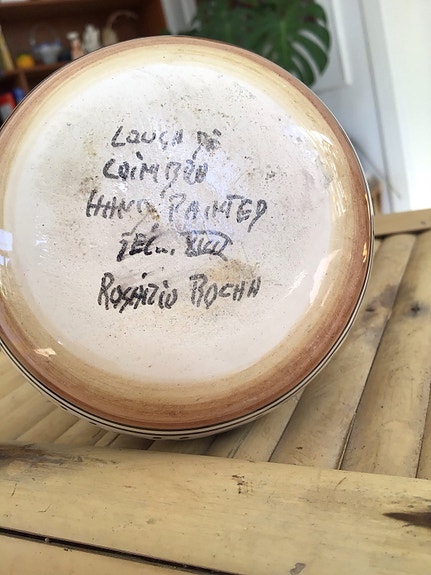 LOUÇA DE
COIMBRA
HAND PAINTED
SEC... XVII
ROSÁRIO ROCHA